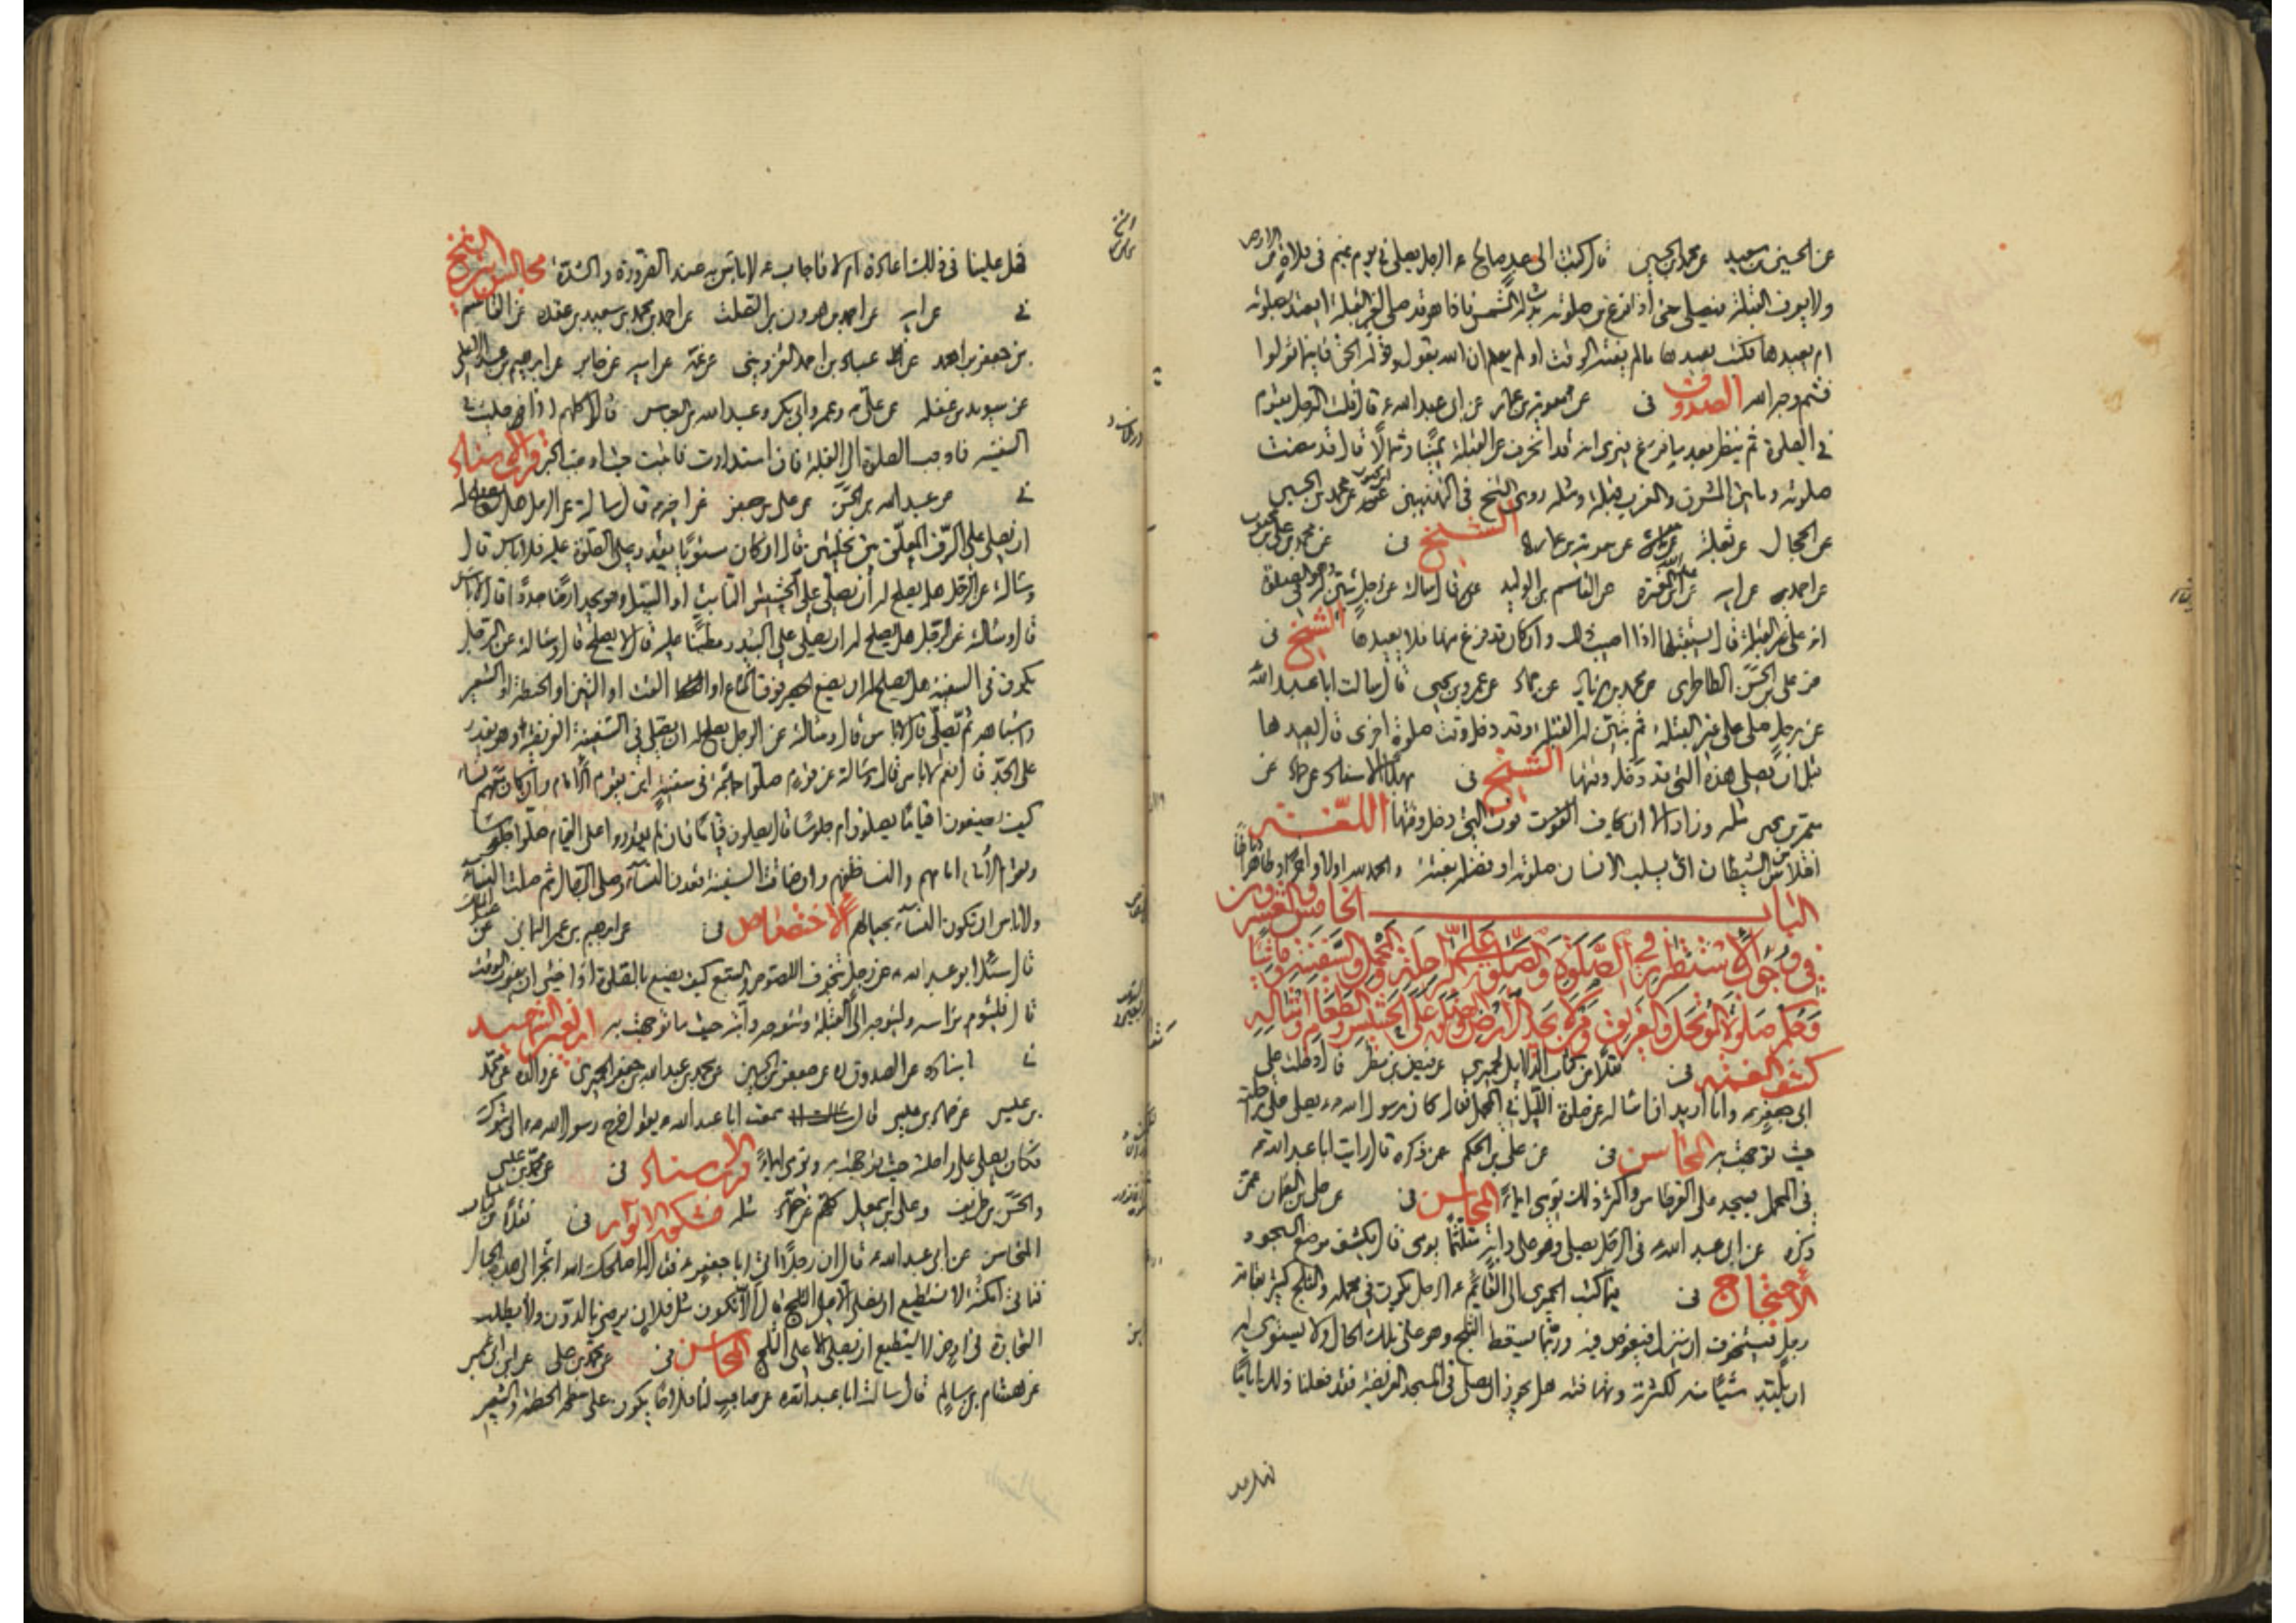 عن الحسين بن سعيد عن محمد بن الحصين قال كتبت الى عبد صالح ع الرجل يصلي في يوم غيم في فلاة من الارض
ولا يعرف القبلة فيصلي حتى اذا فرغ من صلوته بدت له الشمس فاذا هو قد صلى لغير القبلة ايعتد بصلوته
ام يعيدها فكتب يعيدها ما لم يفته الوقت اولم يعلم ان الله يقول وقوله الحق فاينما تولوا
فثم وجه الله الصدوق في عن معوية بن عمار عن ابي عبد الله ع قال قلت الرجل يقوم
في الصلوة ثم ينظر بعد ما فرغ فيرى انه قد انحرف عن القبلة يمينا وشمالا قال قد مضت
صلوته وما بين المشرق والمغرب قبلة ومثله روى الشيخ في التهذيبين عن محمد بن الحسين
عن الحجال عن ثعلبة عن معوية بن عمار الشيخ في عن محمد بن علي بن محبوب
عن احمد عن ابيه عن عبد الله بن المغيرة عن القاسم بن الوليد قال سالته عن رجل تبين له وهو في الصلوة
انه على غير القبلة قال يستقبلها اذا اثبت ذلك وان كان قد فرغ منها فلا يعيدها الشيخ في
عن علي بن الحسن الطاطري عن محمد بن زياد عن حماد عن عمرو بن يحيى قال سالت ابا عبد الله
عن رجل صلى على غير القبلة ثم تبين له القبلة وقد دخل وقت صلوة اخرى قال يعيدها
قبل ان يصلي هذه التي قد دخل وقتها الشيخ في بهذا الاسناد عن حماد عن
معمر بن يحيى مثله وزاد الا ان يخاف الفوت فوت التي دخل وقتها اللغة
الشيطان اي يسلب الانسان صلوته او فضلها بغتة والحمد لله اولا واخرا وظاهرا وباطنا
الباب الخامس والعشرون
في وجوب الاستقرار في الصلوة والصلوة على الراحلة والمحمل والسفينة وماشيا
وحكم صلوة الموتحل والغريق ومن لا يجد الارض على الحشيش والطعام وامثاله
كشف الغمة في نقلا من كتاب الدلايل للحميري عن فيض بن مطر قال دخلت على
ابي جعفر ع وانا اريد ان اساله عن صلوة الليل في المحمل فقال كان رسول الله ص يصلي على راحلته
حيث توجهت به المحاسن في عن علي بن الحكم عن ذكره قال رايت ابا عبد الله ع
في المحمل يسجد على القرطاس واكثر ذلك يومي ايماء المحاسن في عن علي بن النعمان عمن
ذكره عن ابي عبد الله ع في الرجل يصلي وهو على دابته متلثما يومي قال يكشف موضع السجود
الاحتجاج في فيما كتب الحميري الى القايم ع الرجل يكون في محمله والثلج كثير بقامة
رجل فيتخوف ان نزل فيغوص فيه وربما يسقط الثلج وهو على تلك الحال ولا يستوي له
ان يلبد شيئا منه لكثرته وتهافته هل يجوز ان يصلي في المحمل الفريضة فقد فعلنا ذلك اياما
فهل علينا في ذلك اعادة ام لا فاجاب ع لا باس به عند الضرورة والشدة مجالس ابن الشيخ
في عن ابيه عن احمد بن هرون بن الصلت عن احمد بن محمد بن سعيد بن عقده عن القاسم
بن جعفر بن احمد عن عباد بن احمد القزويني عن عمه عن ابيه عن جابر عن ابراهيم بن عبد الاعلى
عن سويد بن غفلة عن علي ع وعمر وابي بكر وعبد الله بن العباس قالوا كلهم اذا صليت في
السفينة فاوجب الصلوة الى القبلة فان استدارت فاثبت حيث اوجبت الخبر قرب الاسناد
في عن عبد الله بن الحسن عن علي بن جعفر عن اخيه ع قال سالته عن الرجل هل يصلح له
ان يصلي على الرف المعلق بين نخلتين قال ان كان مستويا يقدر على الصلوة عليه فلا باس قال
وسالته عن الرجل هل يصلح له ان يصلي على الحشيش النابت او الثيل وهو يجد ارضا جددا قال لا باس
قال وسالته عن الرجل هل يصلح له ان يصلي على البيدر مطينا عليه قال لا يصلح قال وسالته عن الرجل
يكون في السفينة هل يصلح له ان يضع الحصير فوق المتاع او القت او التبن او الحنطة او الشعير
واشباهه ثم يصلي قال لا باس قال وسالته عن الرجل يصلح له ان يصلي في السفينة الفريضة وهو يقدر
على الجد قال نعم لا باس قال وسالته عن قوم صلوا جماعة في سفينة اين يقوم الامام وان كان معهم نساء
كيف يصنعون اقياما يصلون ام جلوسا قال يصلون قياما فان لم يقدروا على القيام صلوا جلوسا
ويقوم الامام امامهم والنساء خلفهم وان ضاقت السفينة قعدن النساء وصلى الرجال ثم صلت النساء
ولا باس ان تكون النساء بحيالهم الاختصاص في عن ابراهيم بن عمر اليماني عن عبد الملك
قال سئل ابو عبد الله ع عن رجل يتخوف اللصوص والسبع كيف يصنع بالصلوة اذا خشي ان يفوت الوقت
قال فليؤم براسه وليتوجه الى القبلة وتتوجه دابته حيث ما توجهت به ابن الشهيد
في اسناده عن الصدوق عن جعفر بن الحسين عن محمد بن عبد الله بن جعفر الحميري عن والده عن محمد
بن عيسى عن حماد بن عيسى قال سمعت ابا عبد الله ع يقول خرج رسول الله ص الى تبوك
فكان يصلي على راحلته حيث توجهت به ويومي ايماء قرب الاسناد في عن محمد بن عيسى
والحسن بن ظريف وعلي بن اسمعيل كلهم عن حماد مثله مشكوة الانوار في نقلا من كتاب
المحاسن عن ابي عبد الله ع قال ان رجلا اتى ابا جعفر ع فقال اصلحك الله اتجر الى هذه الجبال
فناتي امكنة لا نستطيع ان نصلي الا على الثلج قال الا تكون مثل فلان يرضى بالدون ولا يطلب
التجارة في ارض لا يستطيع ان يصلي الا على الثلج المحاسن في عن محمد بن علي عن ابن ابي عمير
عن هشام بن سالم قال سالت ابا عبد الله ع عن صاحب لنا فلاحا يكون على سطحه الحنطة والشعير